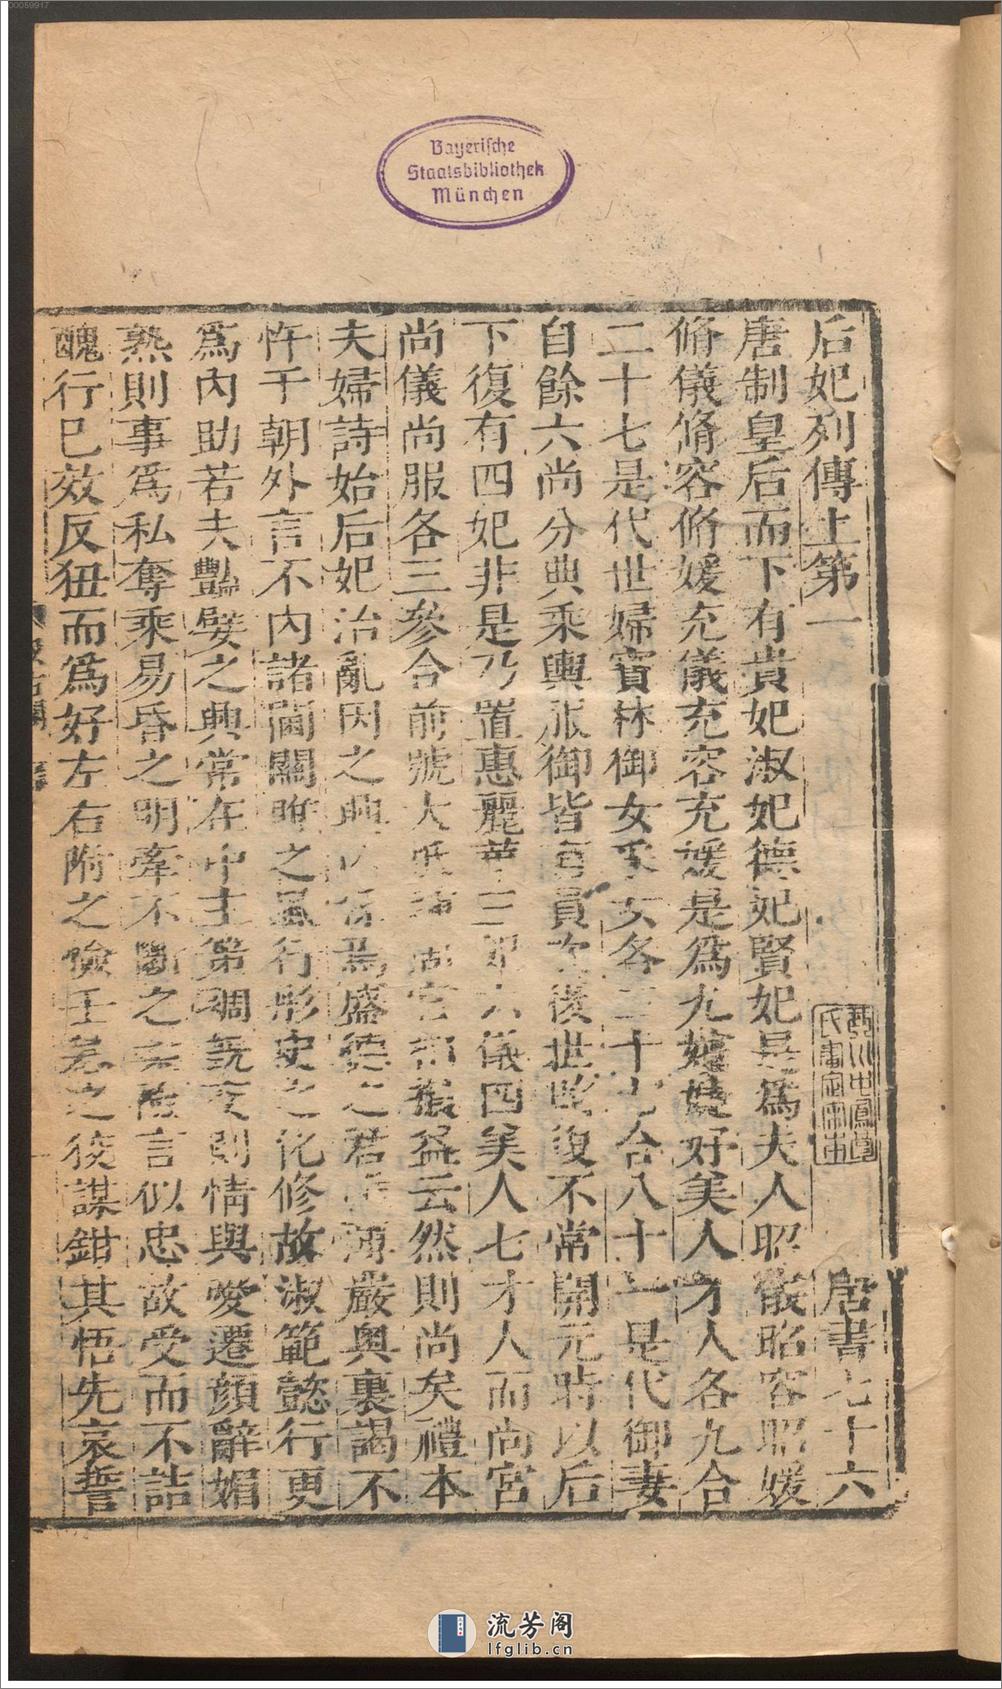 00059917
Bayerische
Staatsbibliothek
München
后妃列傳上第一 唐書七十六
唐制皇后而下有貴妃淑妃德妃賢妃是爲夫人昭儀昭容昭媛
脩儀脩容脩媛充儀充容充媛是爲九嬪婕妤美人才人各九合
二十七是代世婦寶林御女采女各二十七合八十一是代御妻
自餘六尚分典乘輿服御皆有員次後世改復不常開元時以后
下復有四妃非是乃置惠麗華三妃六儀四美人七才人而尚宮
尚儀尚服各三參合前號大氐踵周官相損益云然則尚矣禮本
夫婦詩始后妃治亂因之興亡係焉盛德之君帷薄嚴奧裏謁不
忤于朝外言不內諸閫關雎之風行彤史之化修故淑範懿行更
爲內助若夫艷嬖之興常在中主第裯既交則情與愛遷顔辭媚
熟則事爲私奪乘易昏之明牽不斷之柔險言似忠故受而不詰
醜行已效反狃而爲好左右附之憸壬基之狡謀鉗其悟先哀誓
流芳阁
lfglib.cn